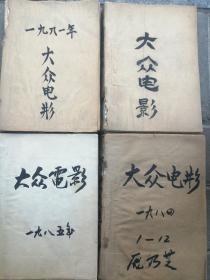 一九八一年
大众电影
大众电影
大众電影
一九八五年
大众电影
一九八四
1—12